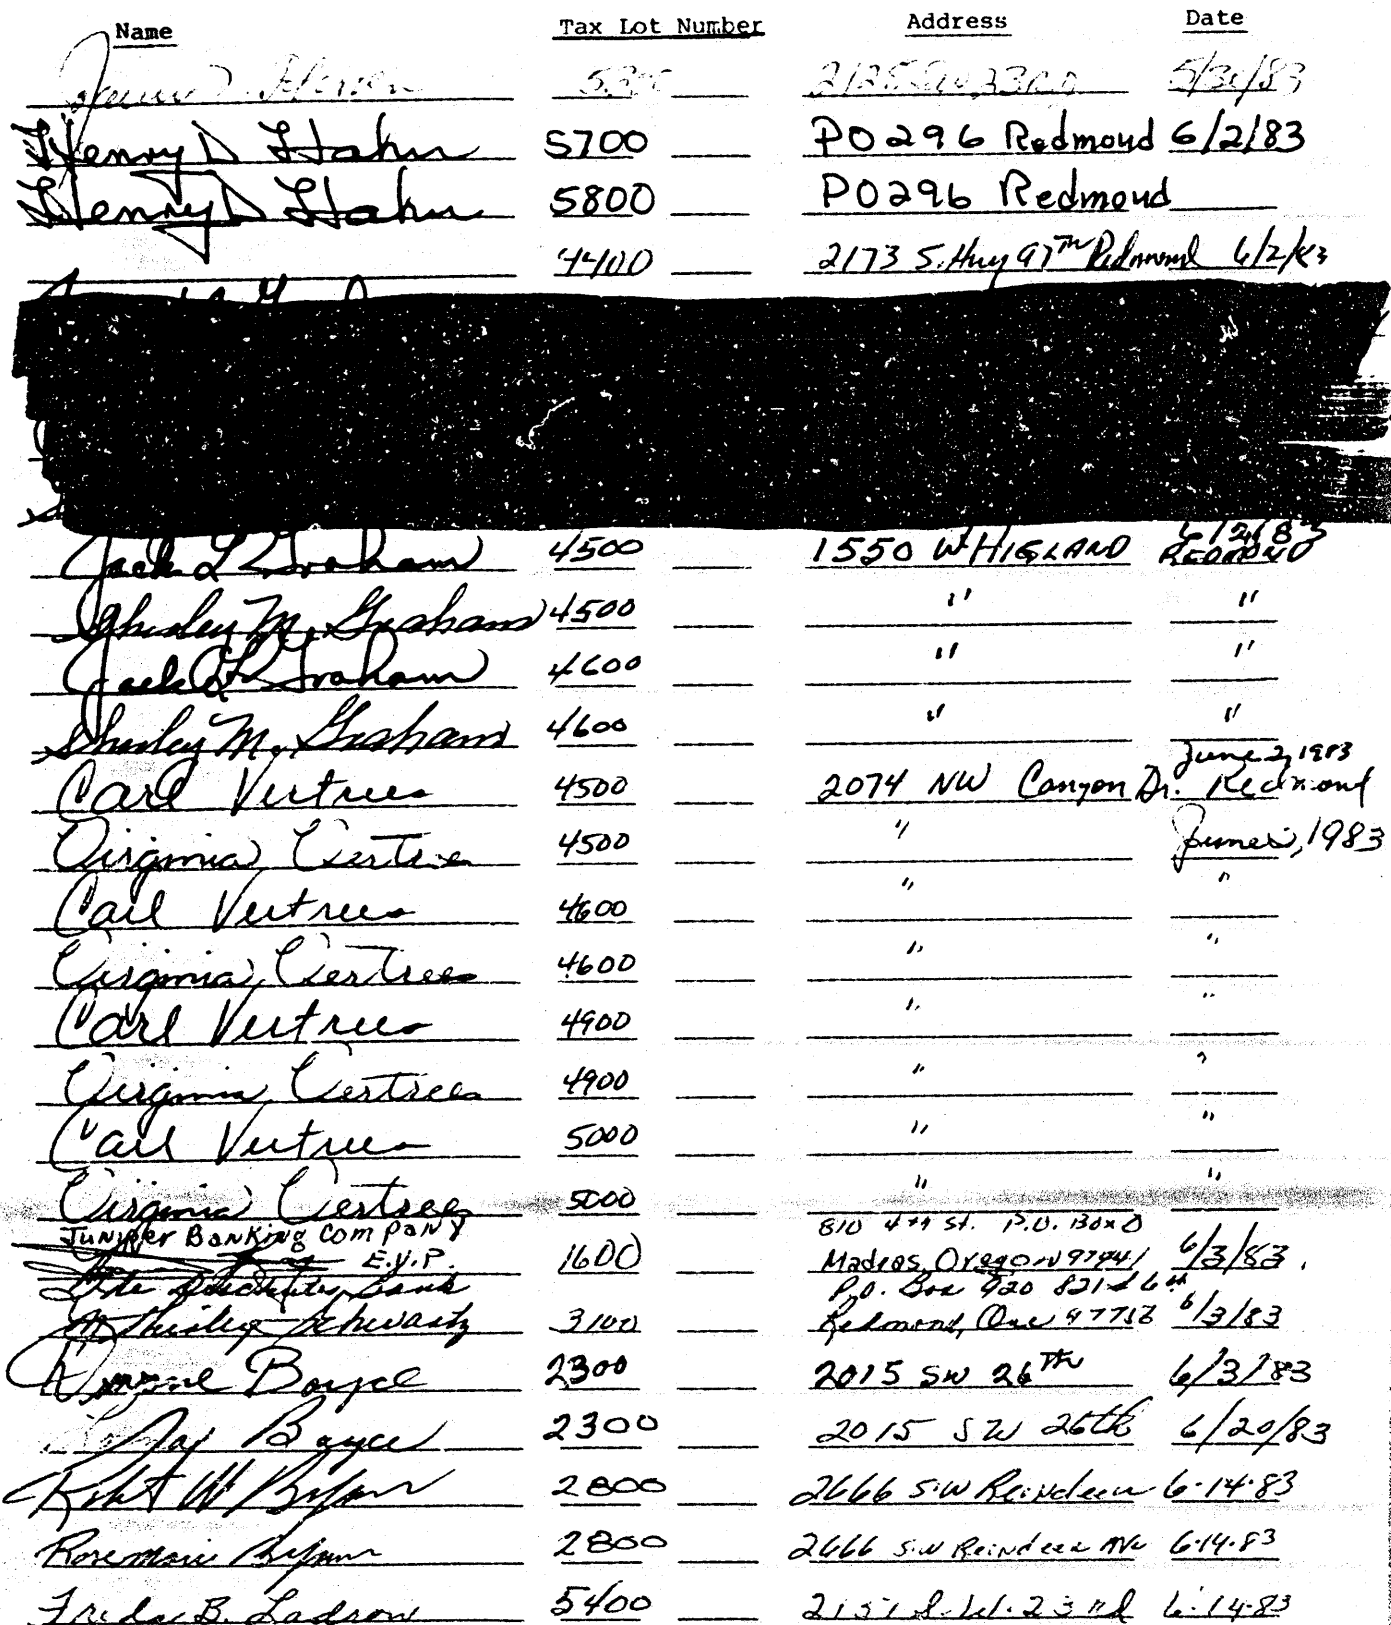 Name Tax Lot Number Address Date
5/31/83
Henry D Hahn 5700 PO 296 Redmond 6/2/83
Henry D Hahn 5800 PO 296 Redmond
4400 2173 S. Hwy 97th Redmond 6/2/83
6/2/83
Jack L Graham 4500 1550 W HIGLAND REDMOND
Shirley M. Graham 4500 " "
Jack L Graham 4600 " "
Shirley M. Graham 4600 " "
June 2, 1983
Carl Vertrees 4500 2074 NW Canyon Dr. Redmond
Virginia Vertrees 4500 " June 1983
Carl Vertrees 4600 " "
Virginia Vertrees 4600 " "
Carl Vertrees 4900 " "
Virginia Vertrees 4900 " "
Carl Vertrees 5000 " "
Virginia Vertrees 5000 " "
Juniper Banking Company 810 4th St. P.O. Box D
E.V.P. 1600 Madras, Oregon 97741 6/3/83
Bank P.O. Box 920 821 S 6th
Shirley Schwartz 3100 Redmond, Ore 97756 6/3/83
Boyce 2300 2015 SW 26th 6/3/83
Boyce 2300 2015 SW 26th 6/20/83
W 2800 2666 S.W Reindeer 6-14-83
Rosemarie 2800 2666 S.W Reindeer Ave 6-14-83
Freda B. Ladrow 5400 2151 S.W. 23rd 6-14-83